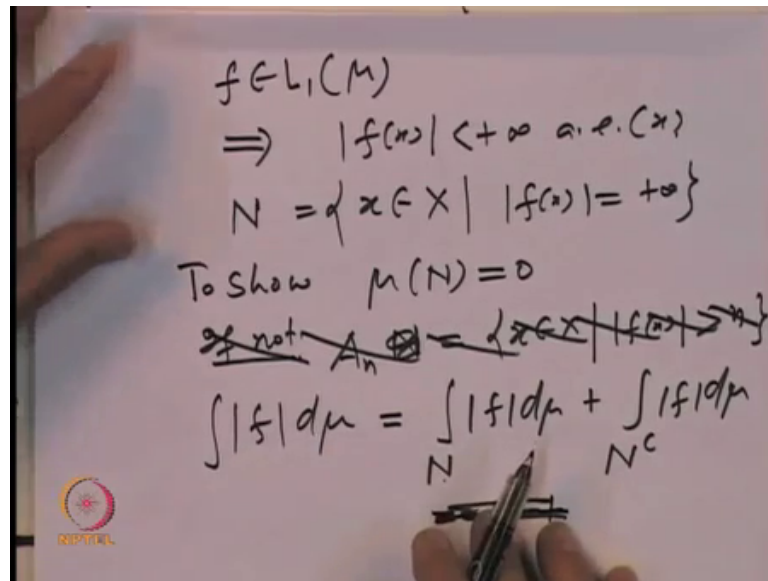 f ∈ L₁(μ)
⟹ |f(x)| < +∞ a.e.(x)
N = { x ∈ X | |f(x)| = +∞ }
To show μ(N) = 0
If not A_n = { x ∈ X | |f(x)| > n }
∫ |f| dμ = ∫_N |f| dμ + ∫_{N^c} |f| dμ
NPTEL